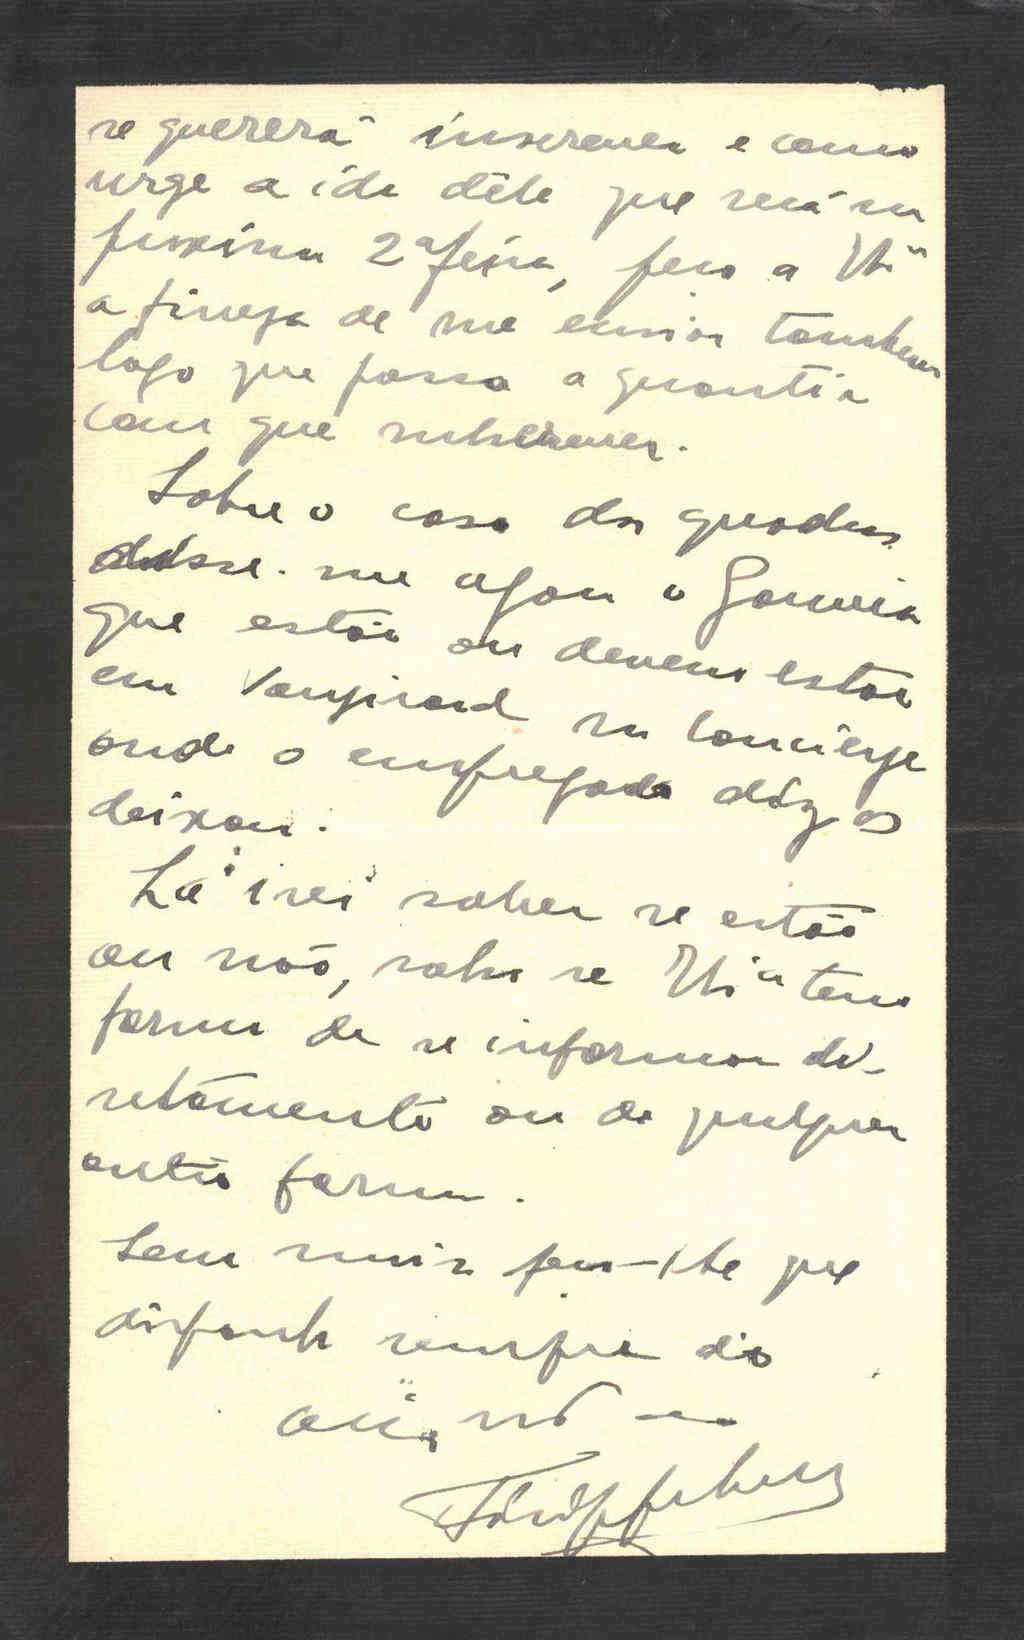 se quererá inscrever e como
urge a ida dêle que será na
proxima 2ª feira, peço a V.
a fineza de me enviar tambem
logo que possa a quantia
com que subscrever.
Sobre o caso dos quadros
disse-me agora o Gouveia
que estão ou devem estar
em Vaugirard na concierge
onde o empregado diz os
deixou.
Lá irei saber se estão
ou não, salvo se tem
forma de se informar di-
retamente ou de qualquer
outra forma.
Sem mais peço-lhe que
disponha sempre do